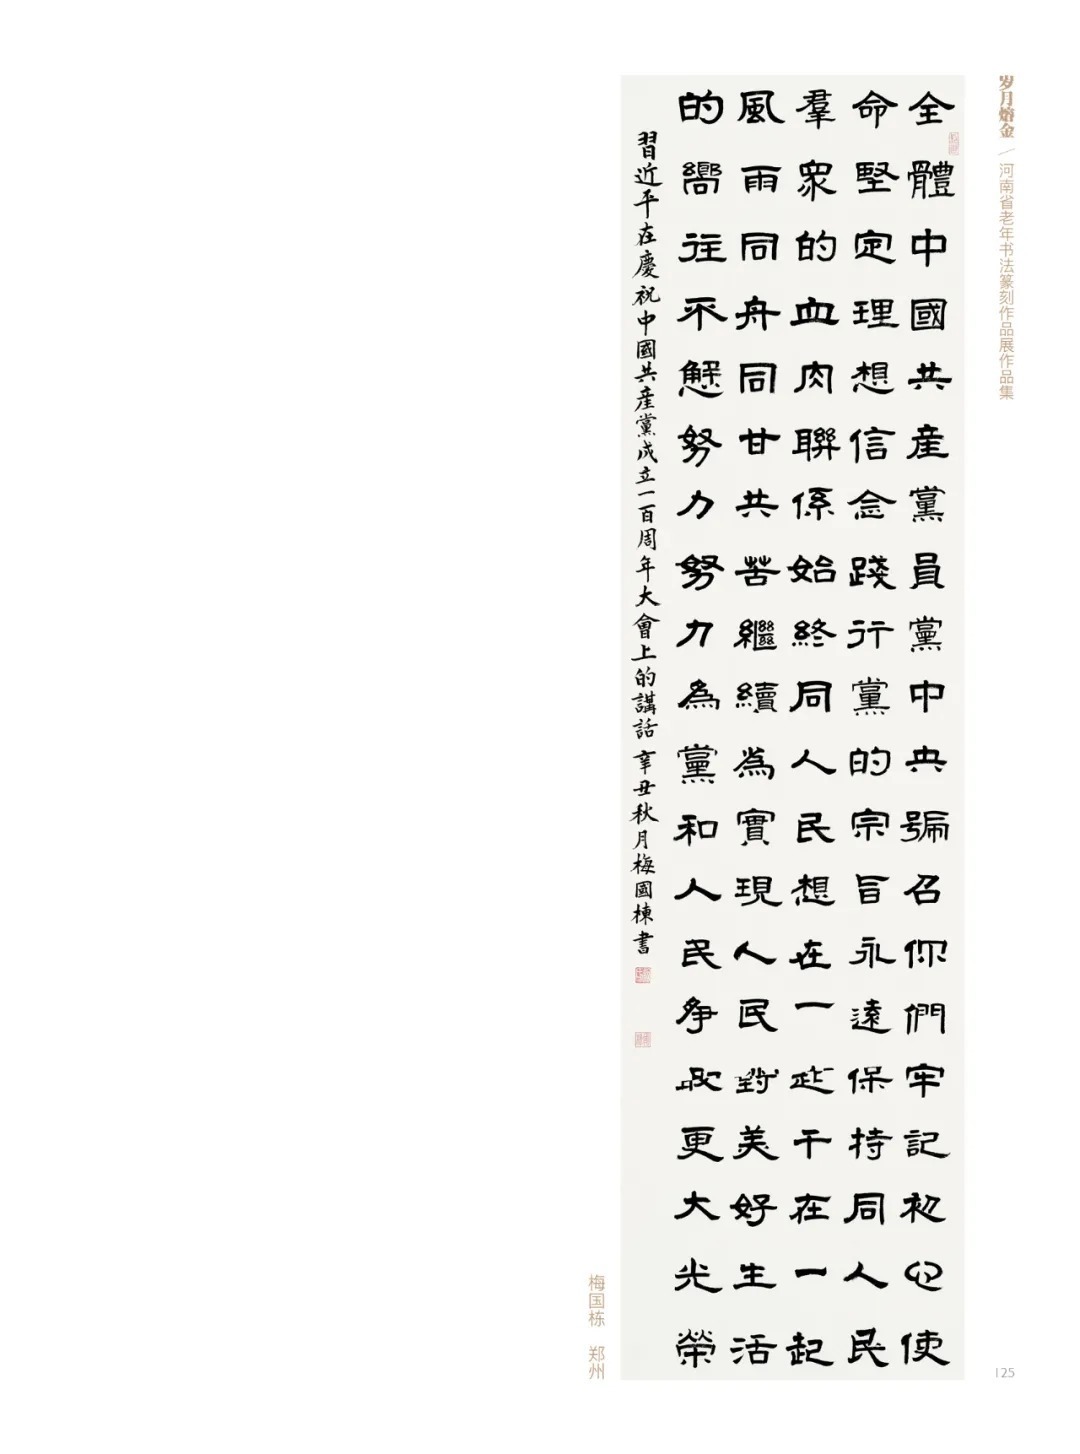 岁月熔金／河南省老年书法篆刻作品展作品集
全體中國共產黨員黨中央號召你們牢記初心使
命堅定理想信念踐行黨的宗旨永遠保持同人民
羣眾的血肉聯係始終同人民想在一起干在一起
風雨同舟同甘共苦繼續為實現人民對美好生活
的嚮往不懈努力努力為黨和人民爭取更大光榮
習近平在慶祝中國共產黨成立一百周年大會上的講話 辛丑秋月梅國棟書
梅国栋 郑州
125